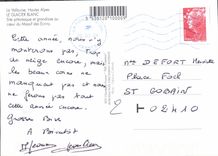 La Vallouise, Hautes Alpes
LE GLACIER BLANC
Site pittoresque et grandiose au
coeur du Massif des Ecrins
Cette année, nous n'y
monterons pas, trop
de neige encore, mais
les beaux coins ne
manquent pas et nous
en ferons pas tout
cette année encore.
Grosses Bises
A Bientôt
Mme DEFORT
Place Foch
ST GOBAIN
02410